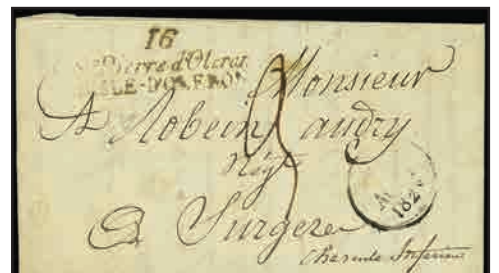 16
Pierre d'Oleron
ILE-D'OLERON
Monsieur
A Robein audry
Négt
3
182
A Surgere
Charente Inferieure